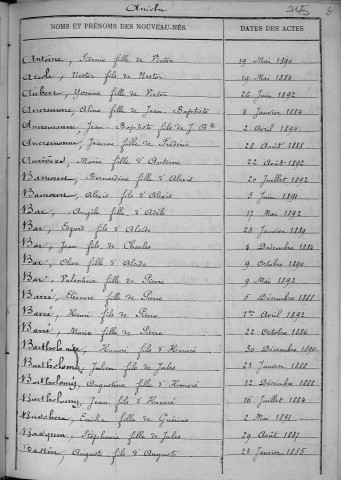 Aniche
NOMS ET PRÉNOMS DES NOUVEAU-NÉS.
DATES DES ACTES
Antoine, fille de Victor 19 Mai 1890
Nestor fils de Nestor 19 Mai 1884
Aubert, Yvonne fille de Victor 26 Juin 1892
Ancremonne, Aline fille de Jean-Baptiste 4 Janvier 1884
Ancremonne, Jean-Baptiste fils de J. Bte 2 Avril 1890
Ancremonne, Jeanne fille de Frédéric 28 Août 1888
Marie fille d'Antoine 22 Août 1892
Bancourt, Bernardine fille d'Alexis 20 Juillet 1892
Bancourt, Alexis fils d'Alexis 3 Juin 1891
Bar, Angèle fille d' 17 Mai 1892
Bar, Edgard fils d'Alcide 23 Janvier 1889
Bar, Jean fils de Charles 4 Décembre 1884
Bar, Olive fille d'Alcide 9 Octobre 1890
Bar, Valentine fille de Pierre 9 Mai 1892
Barré, Etienne fils de Pierre 5 Décembre 1888
Barré, Henri fils de Pierre 1er Avril 1892
Barré, Marie fille de Pierre 22 Octobre 1886
Bartholomée, Honoré fils d'Honoré 30 Décembre 1890
Bartholomé, Julien fils de Jules 23 Janvier 1888
Bartholomé, Augustine fille d'Honoré 12 Décembre 1888
Bartholomé, Jean fils d'Honoré 16 Juillet 1884
Emilia fille de 2 Mai 1891
Basquin, Stéphanie fille de Jules 29 Août 1887
Bastin, Auguste fils d'Auguste 23 Janvier 1885